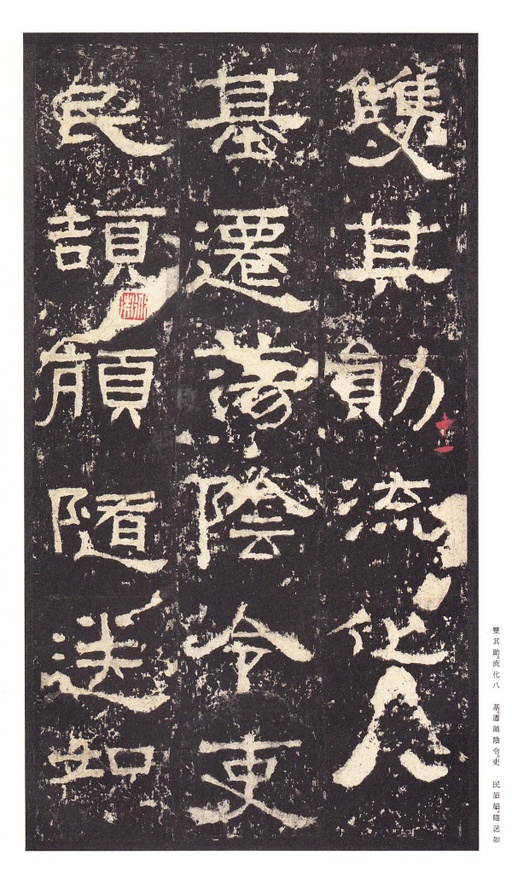 雙其勛流化八
基遷蕩陰令吏
民頡頏隨送如
雙其勛流化八 基遷蕩陰令吏 民頡頏隨送如